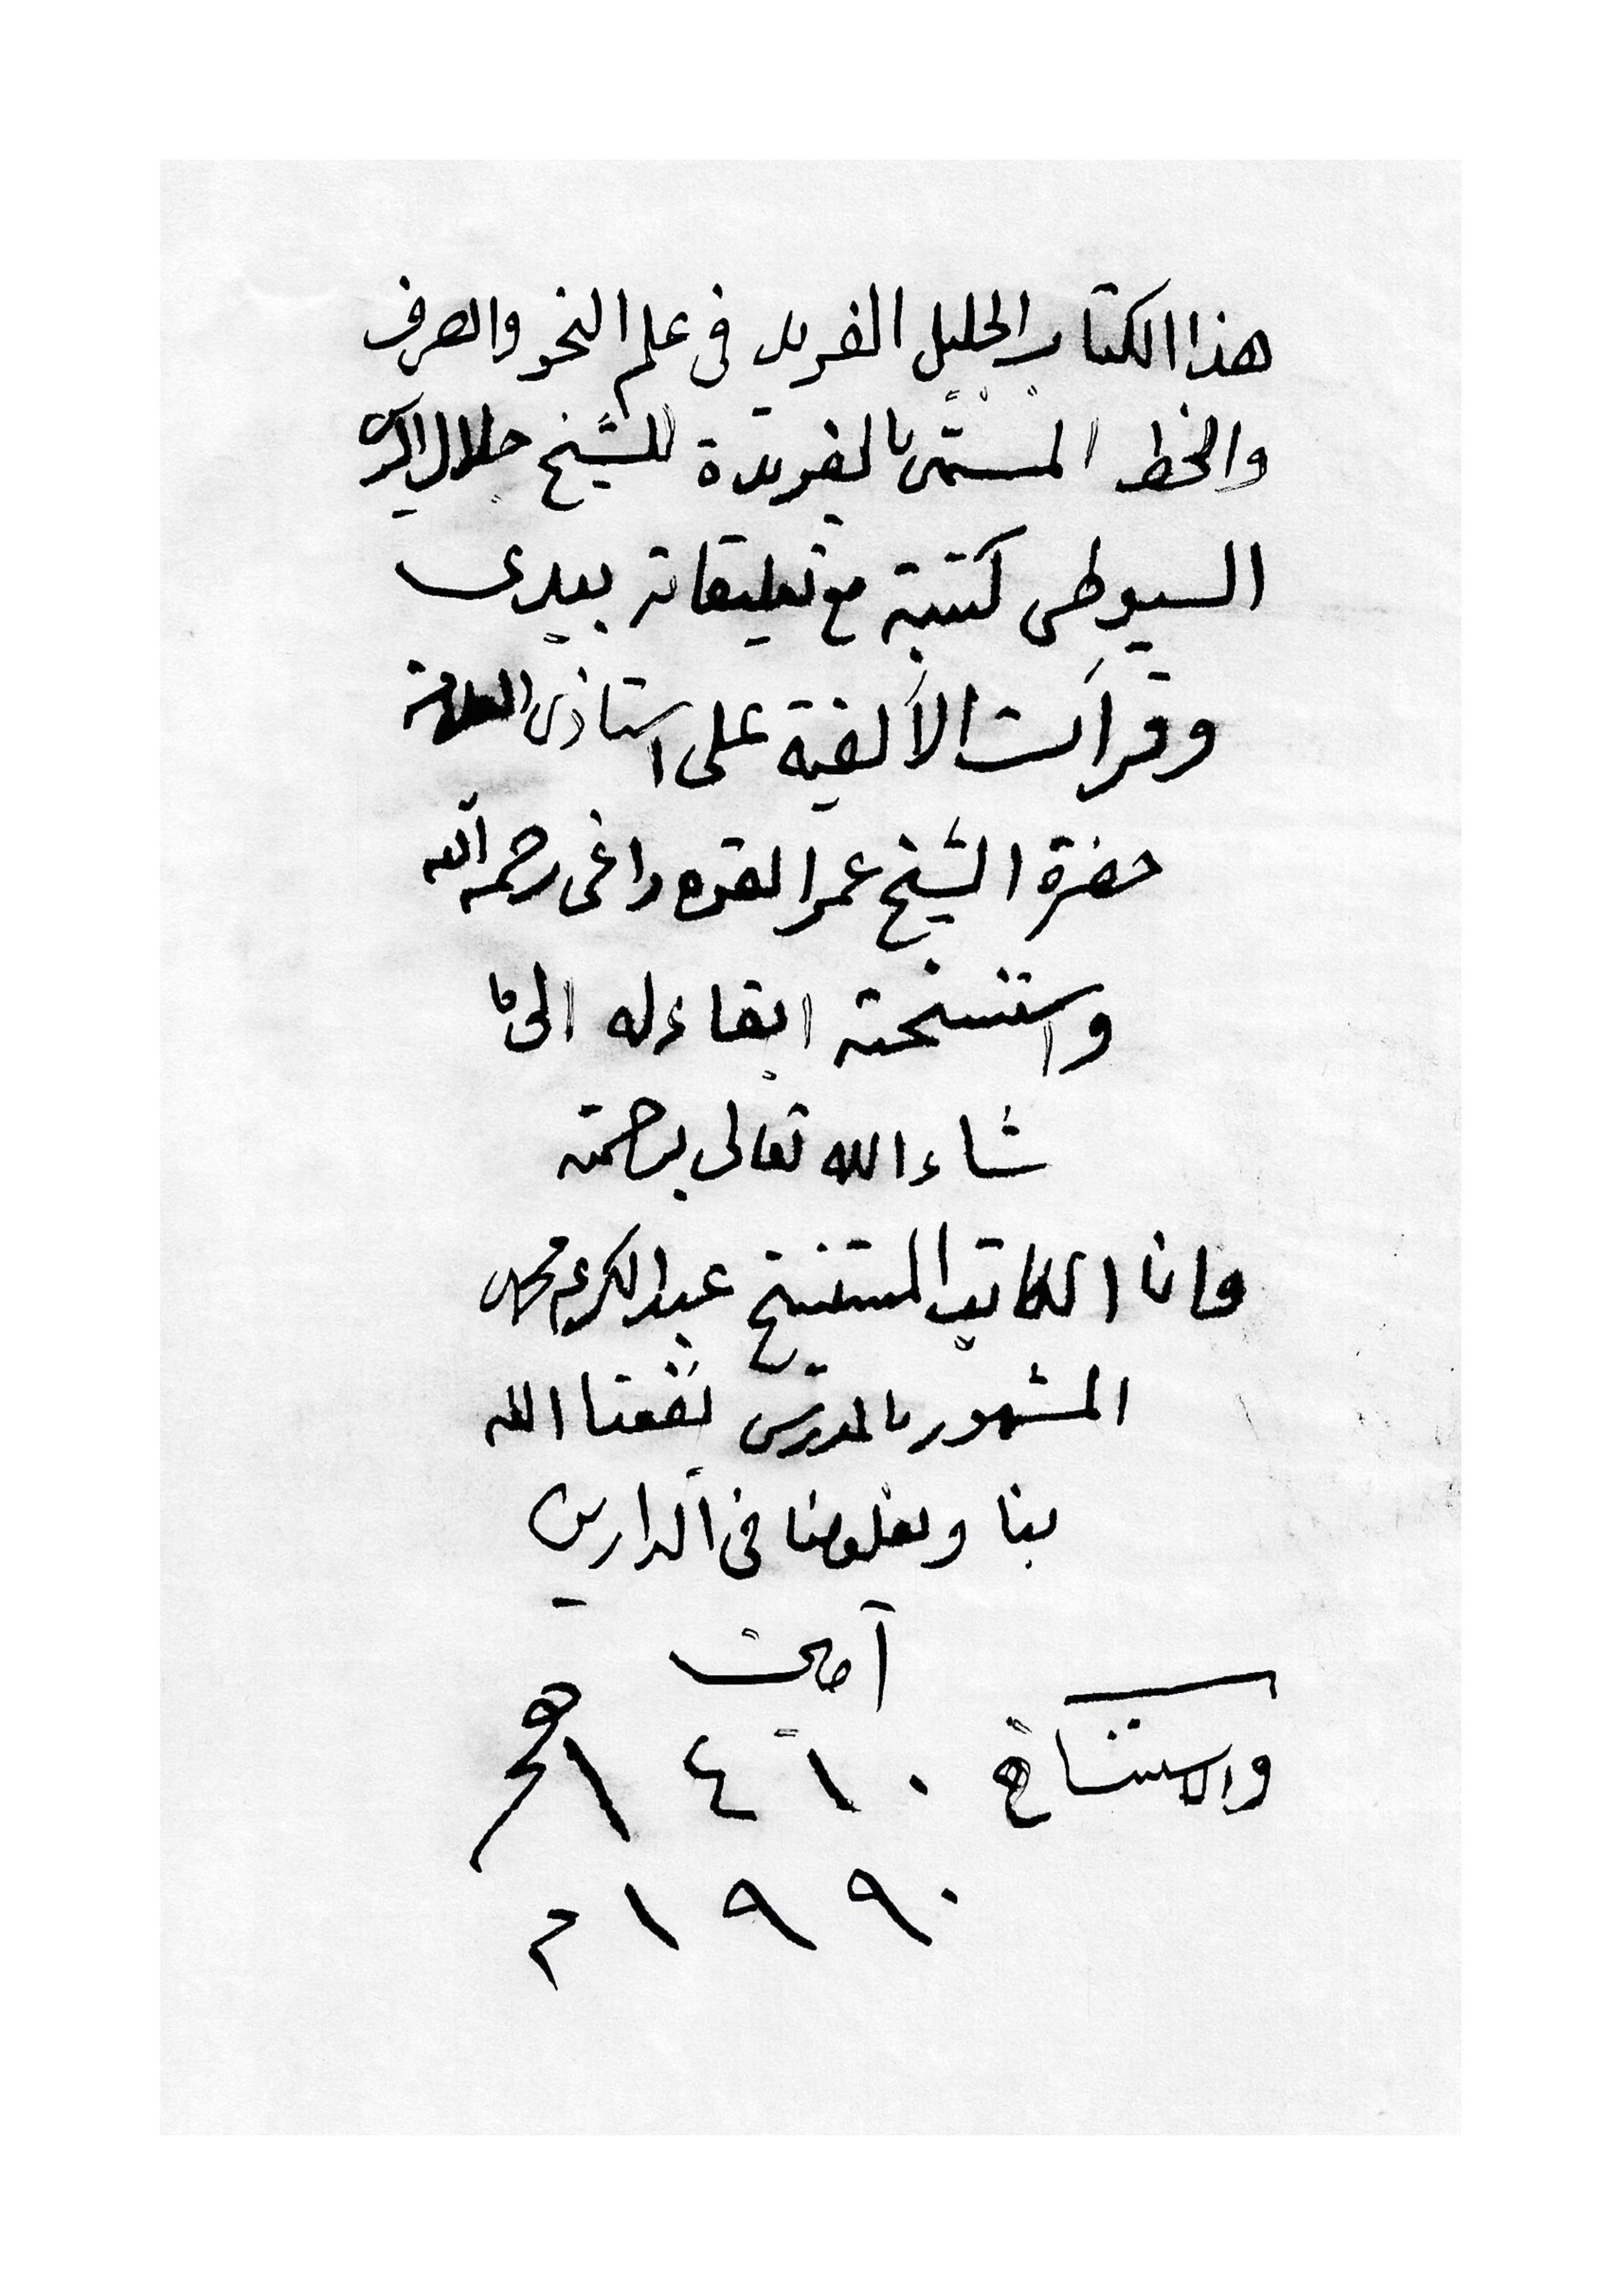 هذا الكتاب الجليل الفريد فى علم النحو والصرف
والخط المسمّى بالفريدة للشيخ جلال الدين
السيوطى كتبته مع تعليقاته بيدى
وقرأت الألفية على استاذى العلامة
حضرة الشيخ عمر القره داغى رحمه الله
واستنسخته ابقاء له الى ما
شاء الله تعالى برحمته
وانا الكاتب المستنسخ عبدالكريم محمد
المشهور بالمدرس نفعنا الله
بنا وبعلومنا فى الدارين
آمين
والاستنساخ ١٤١٠ هجر
١٩٩٠ م